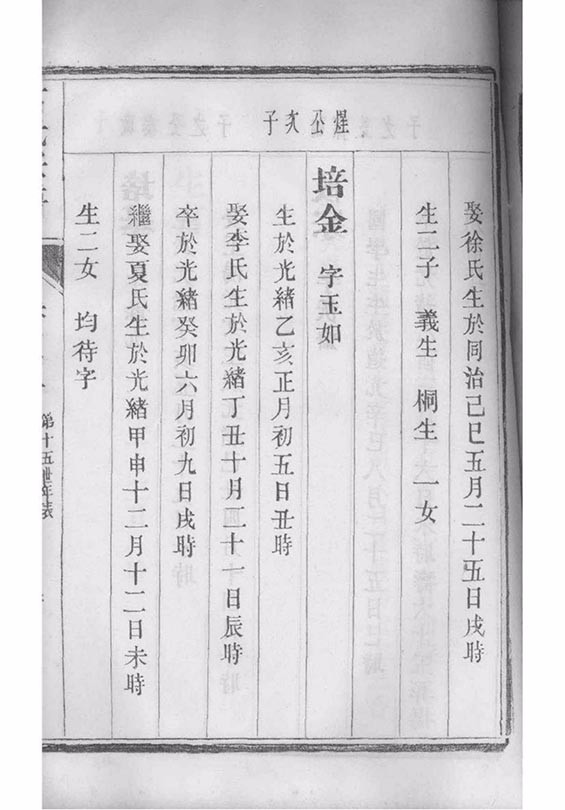 娶徐氏生於同治己巳五月二十五日戌時
生二子 義生 桐生 一女
煋公次子
培金 字玉如
生於光緒乙亥正月初五日丑時
娶李氏生於光緒丁丑十月二十一日辰時
卒於光緒癸卯六月初九日戌時
繼娶夏氏生於光緒甲申十二月十二日未時
生二女 均待字
第十五世年表